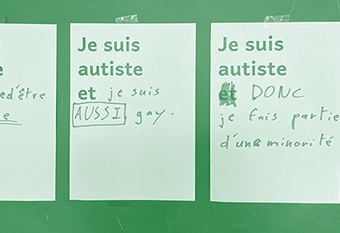 e
e
ed'être
e
Je suis
autiste
et je suis
AUSSI gay.
Je suis
autiste
et DONC
je fais partie
d'une minorité